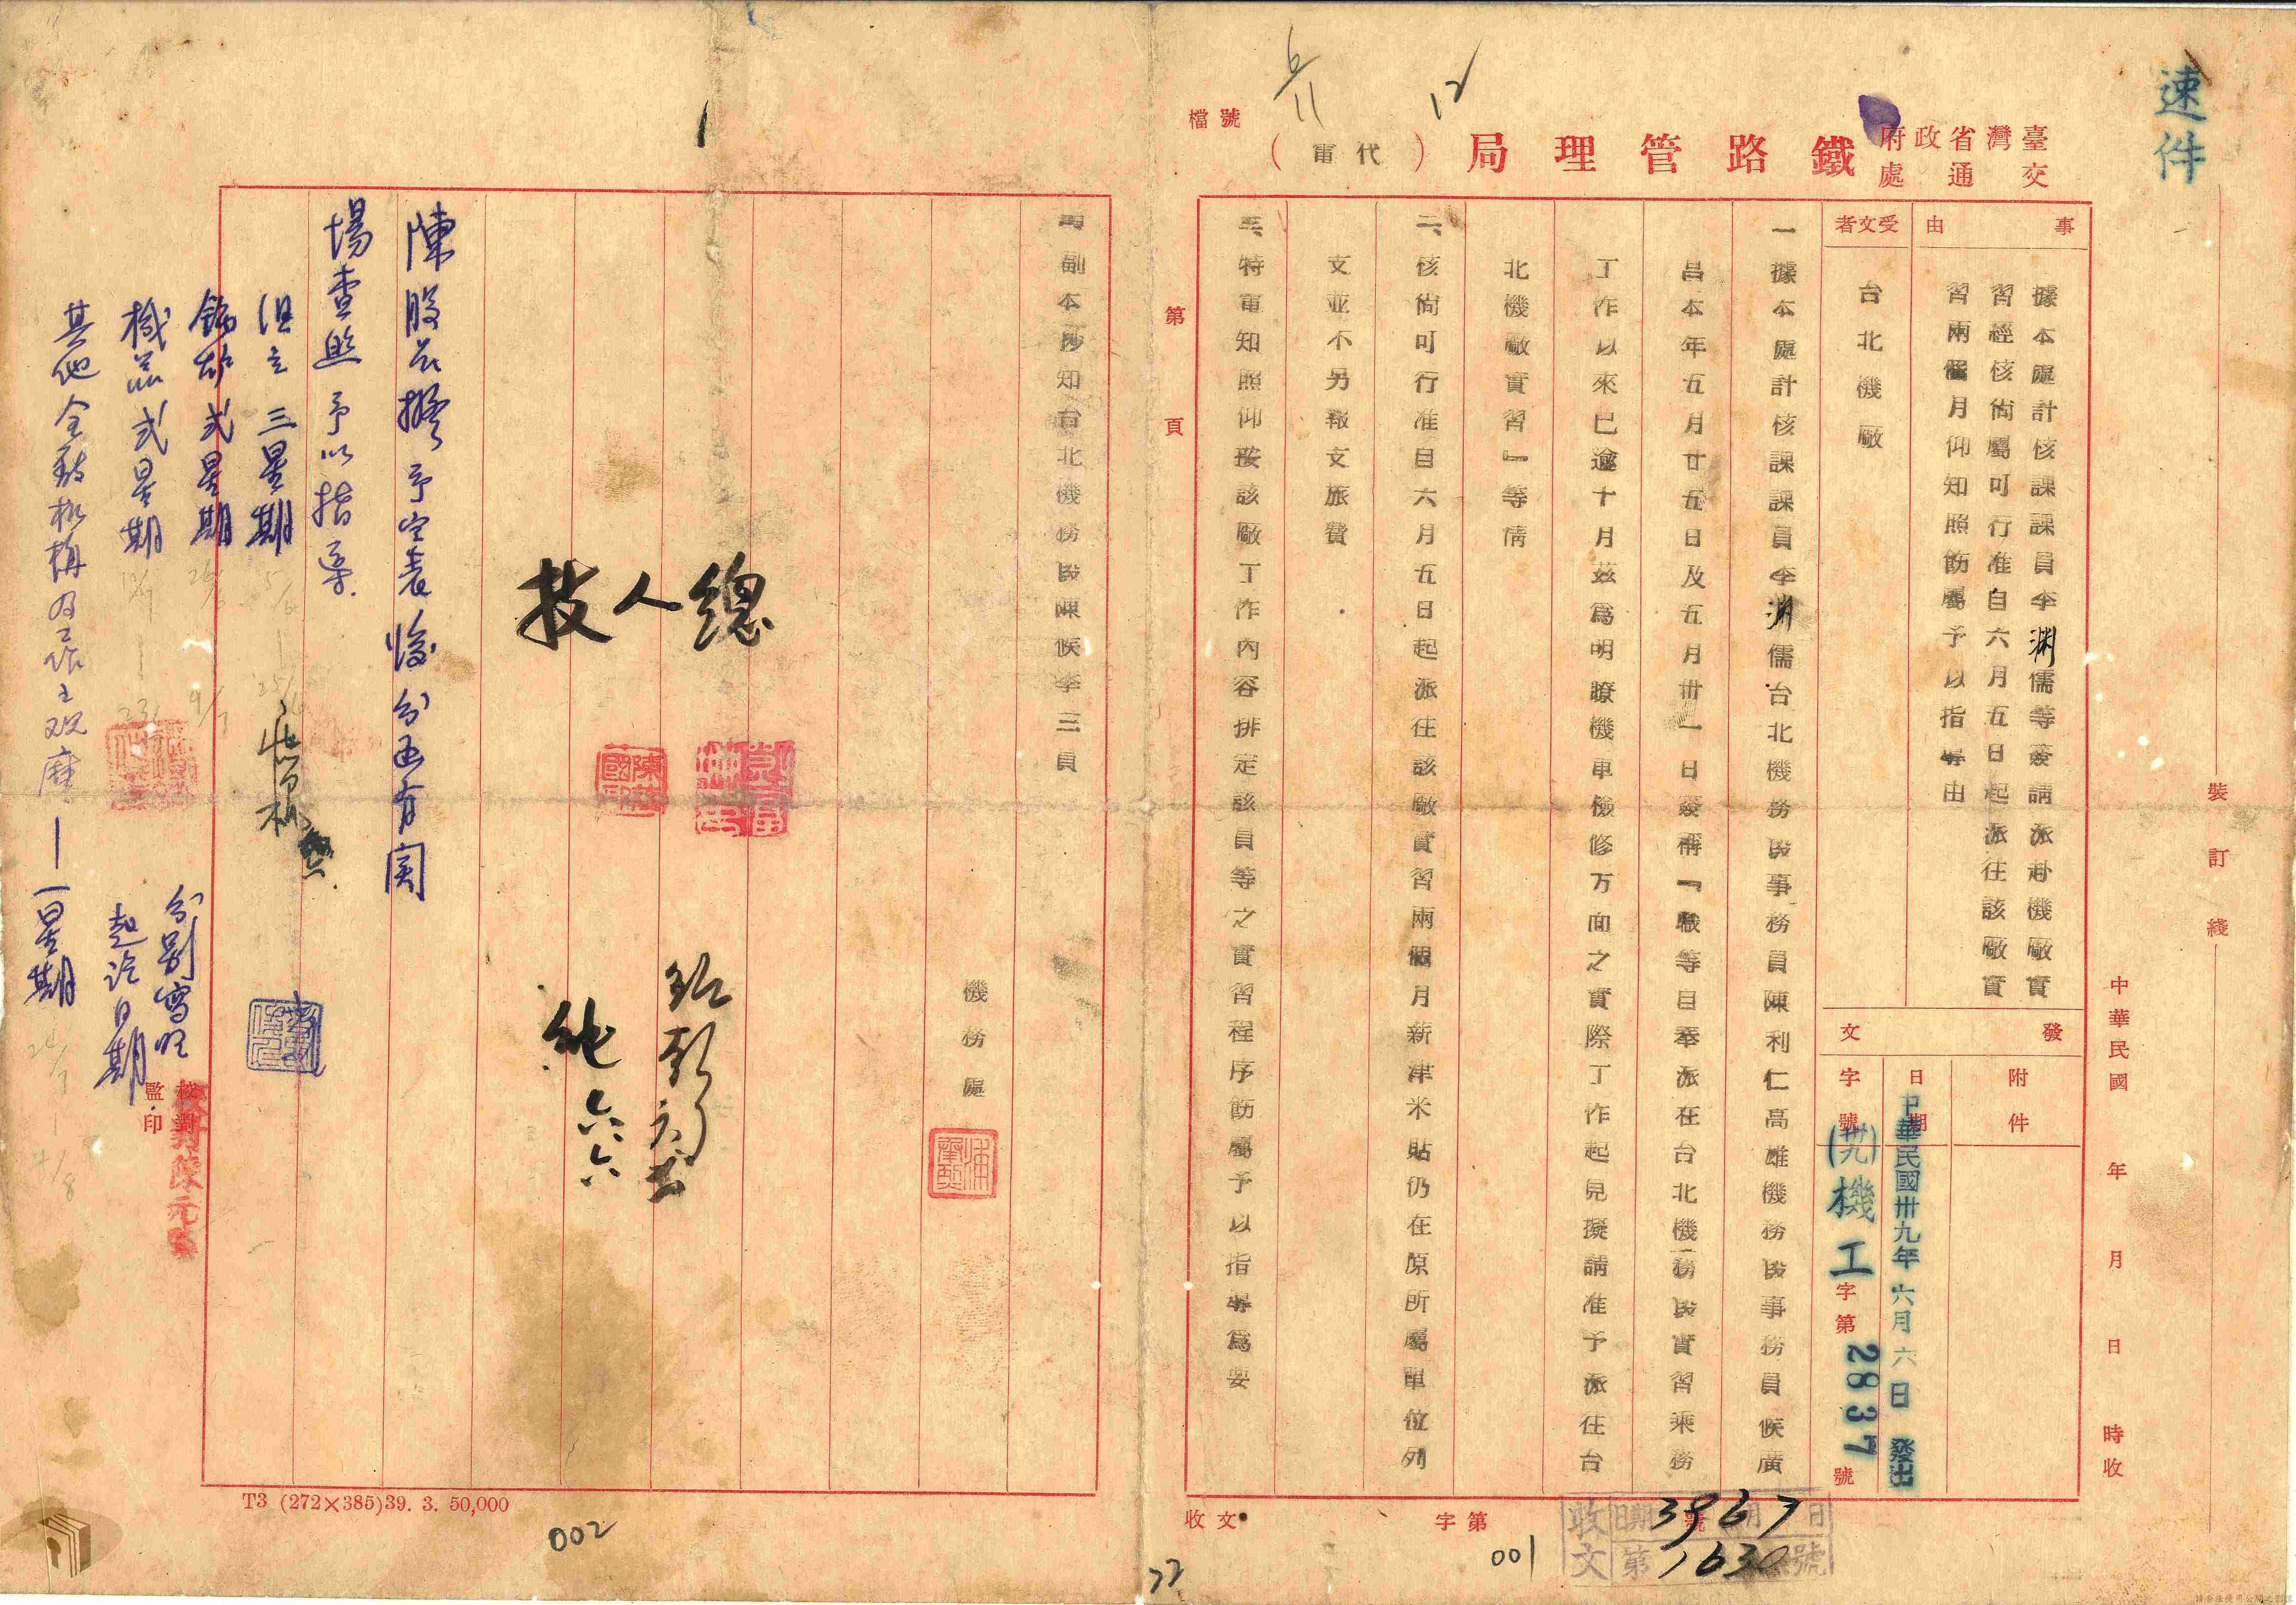 速件
檔號
臺灣省政府
交通處
鐵路管理局
(代電)
6/11
12
事由
據本處計核課課員李渊儒等簽請派赴機廠實
習經核尚屬可行准自六月五日起派往該廠實
習兩個月仰知照飭屬予以指導由
受文者
台北機廠
發文
附件
日期
中華民國卅九年六月六日發出
字號
(卅九)機工字第2837號
一據本處計核課課員李渊儒台北機務段事務員陳利仁高雄機務段事務員候廣
昌本年五月廿五日及五月卅一日簽稱『職等自奉派在台北機務段實習乘務
工作以來已逾十月茲爲明瞭機車檢修方面之實際工作起見擬請准予派往台
北機廠實習』等情
二、核尚可行准自六月五日起派往該廠實習兩個月薪津米貼仍在原所屬單位列
支並不另報支旅費
三、特電知照仰按該廠工作內容排定該員等之實習程序飭屬予以指導爲要
第 頁
裝訂綫
中華民國 年 月 日 時收
收文 字第 號
收文
日期 39 6 7 日
第 1630 號
001
22
四副本抄知台北機務段陳候李三員
機務處
總人技
陳股長擬予定表後分函有関
場查照予以指導
俱立 三星期 5/6 — 25/6
鍋炉 弍星期 26/6 9/7
機器弍星期 10/7 — 23/7
其他全敎机構及工作主观摩 — 一星期 24/7 — 1/8
分别寫明
起訖日期
校對
監印
T3 (272×385)39. 3. 50,000
002